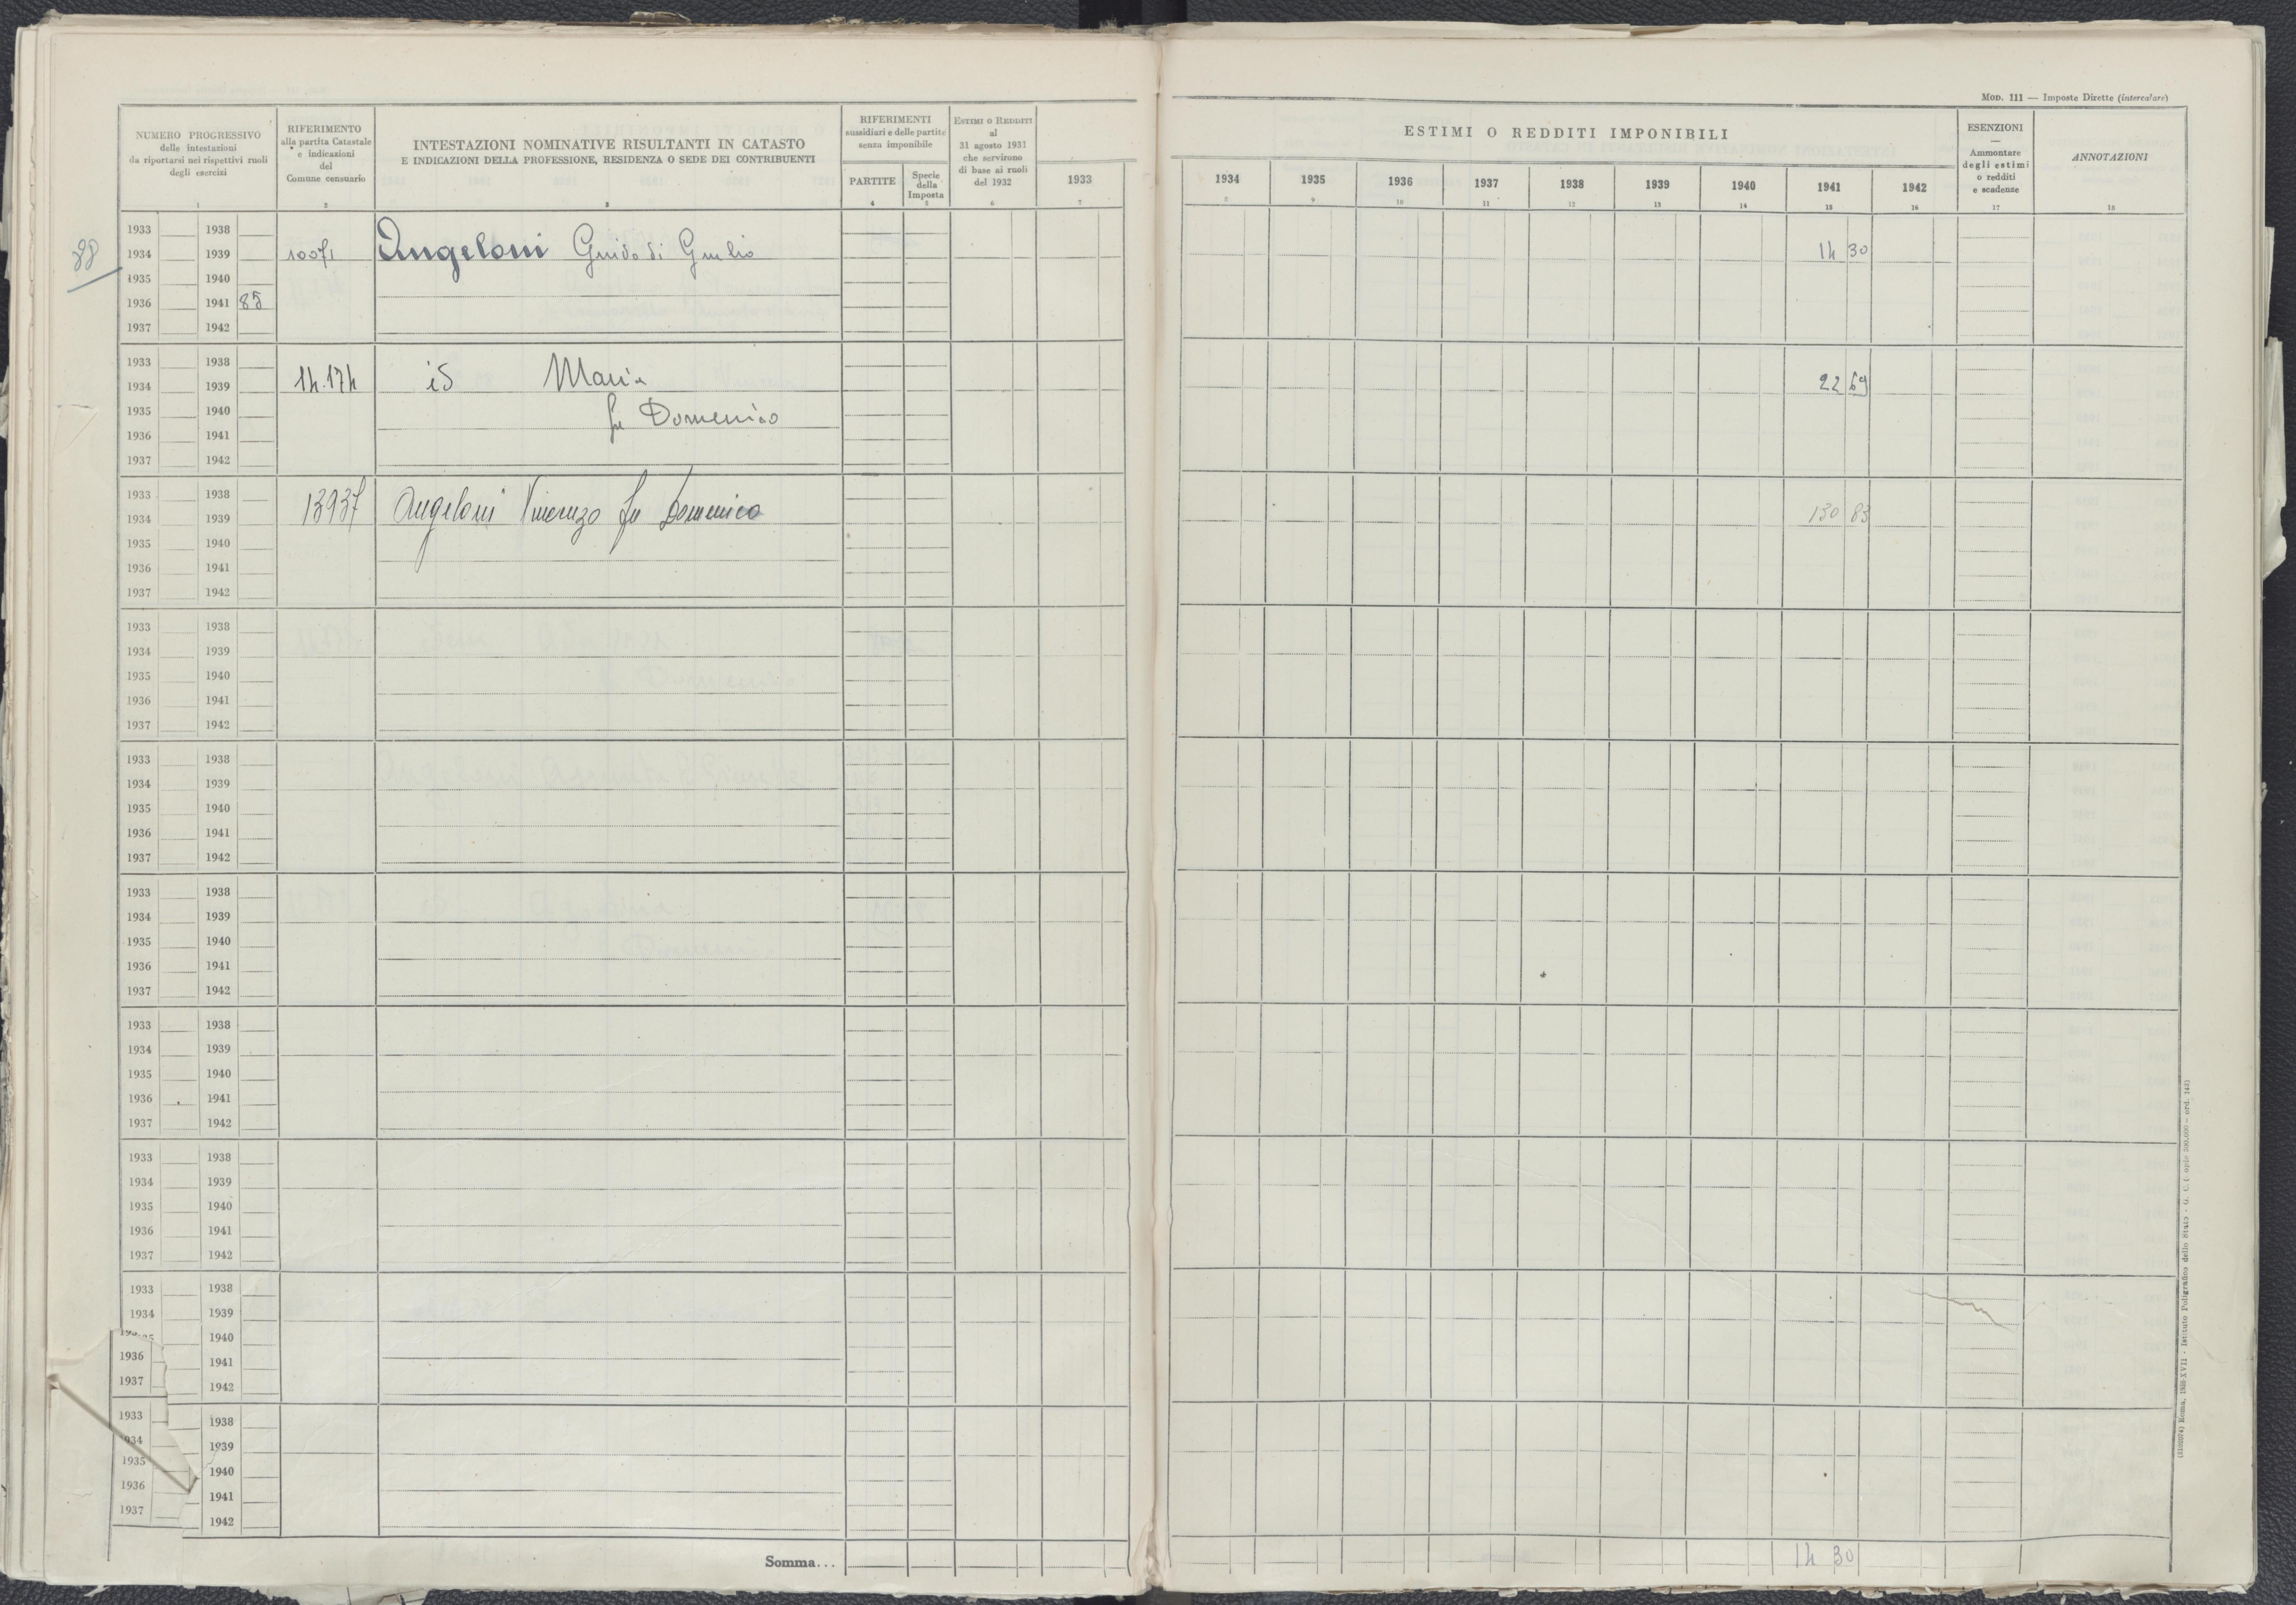 MOD. 111 — Imposte Dirette (intercalare)
NUMERO PROGRESSIVO
delle intestazioni
da riportarsi nei rispettivi ruoli
degli esercizi
RIFERIMENTO
alla partita Catastale
e indicazioni
del
Comune censuario
INTESTAZIONI NOMINATIVE RISULTANTI IN CATASTO
E INDICAZIONI DELLA PROFESSIONE, RESIDENZA O SEDE DEI CONTRIBUENTI
RIFERIMENTI
sussidiari e delle partite
senza imponibile
PARTITE
Specie
della
Imposta
ESTIMI O REDDITI
al
31 agosto 1931
che servirono
di base ai ruoli
del 1932
1933
ESTIMI O REDDITI IMPONIBILI
1934 1935 1936 1937 1938 1939 1940 1941 1942
ESENZIONI
—
Ammontare
degli estimi
o redditi
e scadenze
ANNOTAZIONI
1 2 3 4 5 6 7 8 9 10 11 12 13 14 15 16 17 18
88
1933 1938
1934 1939 10071 Angeloni Guido di Giulio 14 30
1935 1940
1936 1941 85
1937 1942
1933 1938
1934 1939 14.174 id Maria 22 69
1935 1940 fu Domenico
1936 1941
1937 1942
1933 1938
1934 1939 13937 Angeloni Vincenzo fu Domenico 130 83
1935 1940
1936 1941
1937 1942
1933 1938
1934 1939
1935 1940
1936 1941
1937 1942
1933 1938
1934 1939
1935 1940
1936 1941
1937 1942
1933 1938
1934 1939
1935 1940
1936 1941
1937 1942
1933 1938
1934 1939
1935 1940
1936 1941
1937 1942
1933 1938
1934 1939
1935 1940
1936 1941
1937 1942
1933 1938
1934 1939
1940
1936 1941
1937 1942
1933 1938
1939
1935 1940
1936 1941
1937 1942
Somma... 14 30